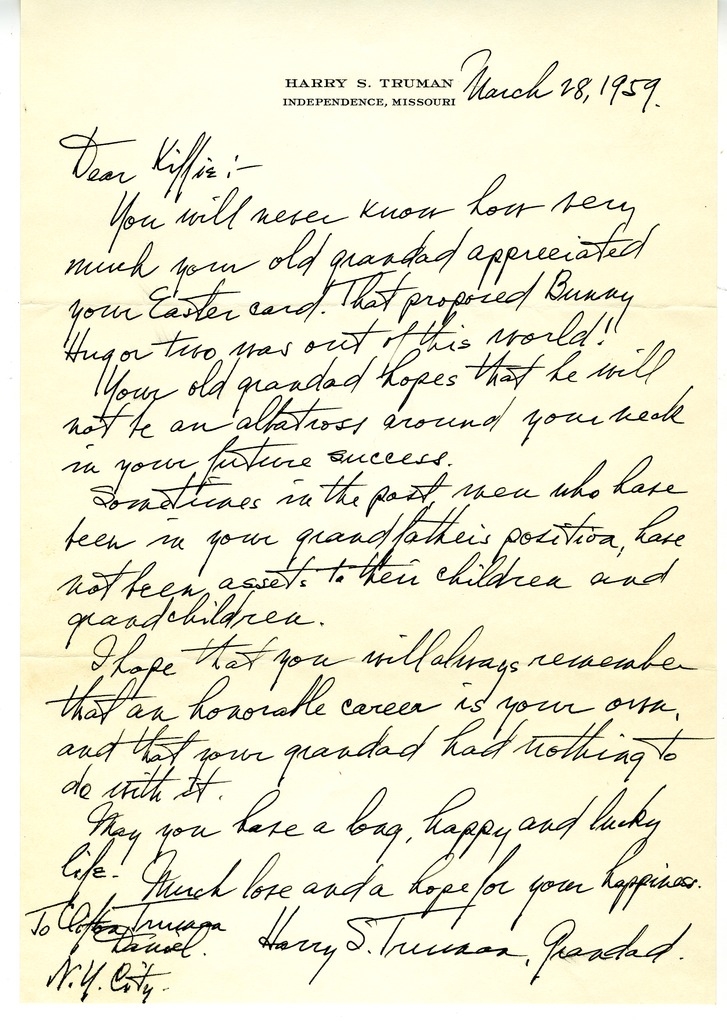 HARRY S. TRUMAN
INDEPENDENCE, MISSOURI
March 28, 1959.
Dear Kiffie:-
You will never know how very
much your old grandad appreciated
your Easter card. That proposed Bunny
Hug or two was out of this world!
Your old grandad hopes that he will
not be an albatross around your neck
in your future success.
Sometimes in the past, men who have
been in your grandfather's position, have
not been assets to their children and
grandchildren.
I hope that you will always remember
that an honorable career is your own,
and that your grandad had nothing to
do with it.
May you have a long, happy and lucky
life. Much love and a hope for your happiness.
Harry S. Truman, Grandad.
To Clifton Truman
Daniel.
N.Y. City.